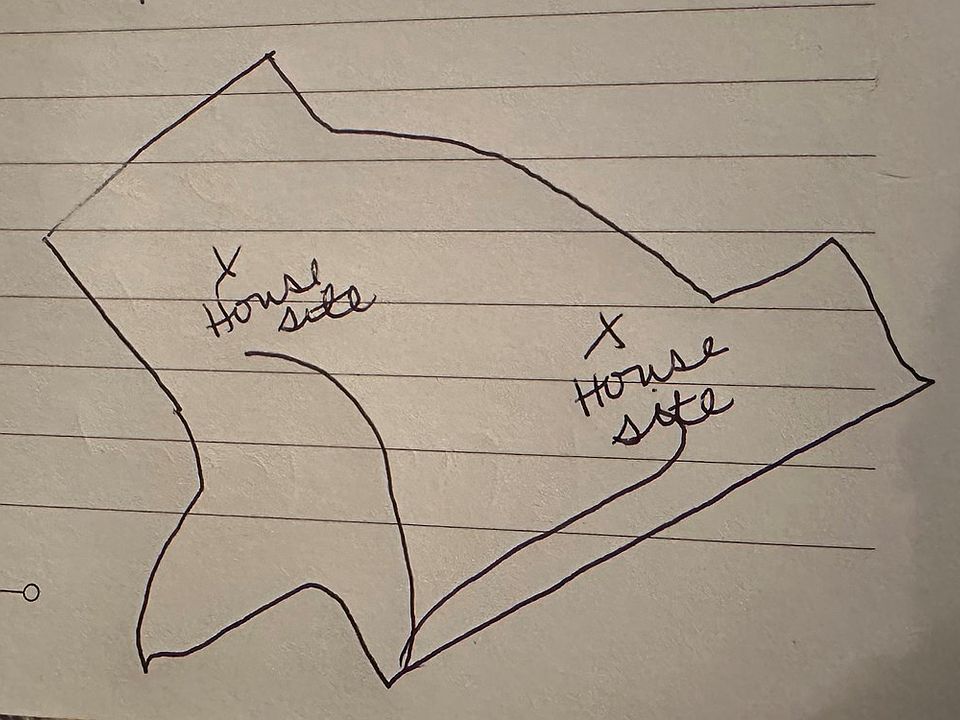 X
House
site
X
House
site